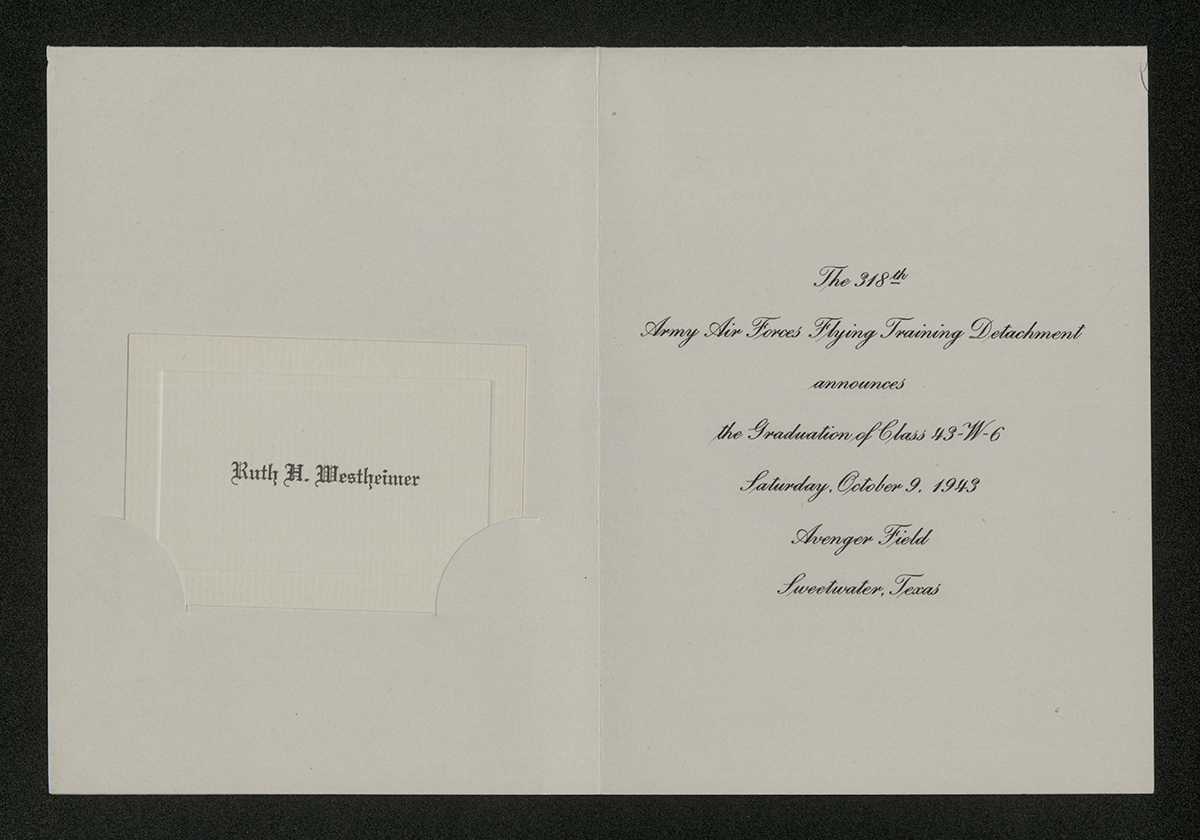 Ruth H. Westheimer
The 318th
Army Air Forces Flying Training Detachment
announces
the Graduation of Class 43-W-6
Saturday, October 9, 1943
Avenger Field
Sweetwater, Texas